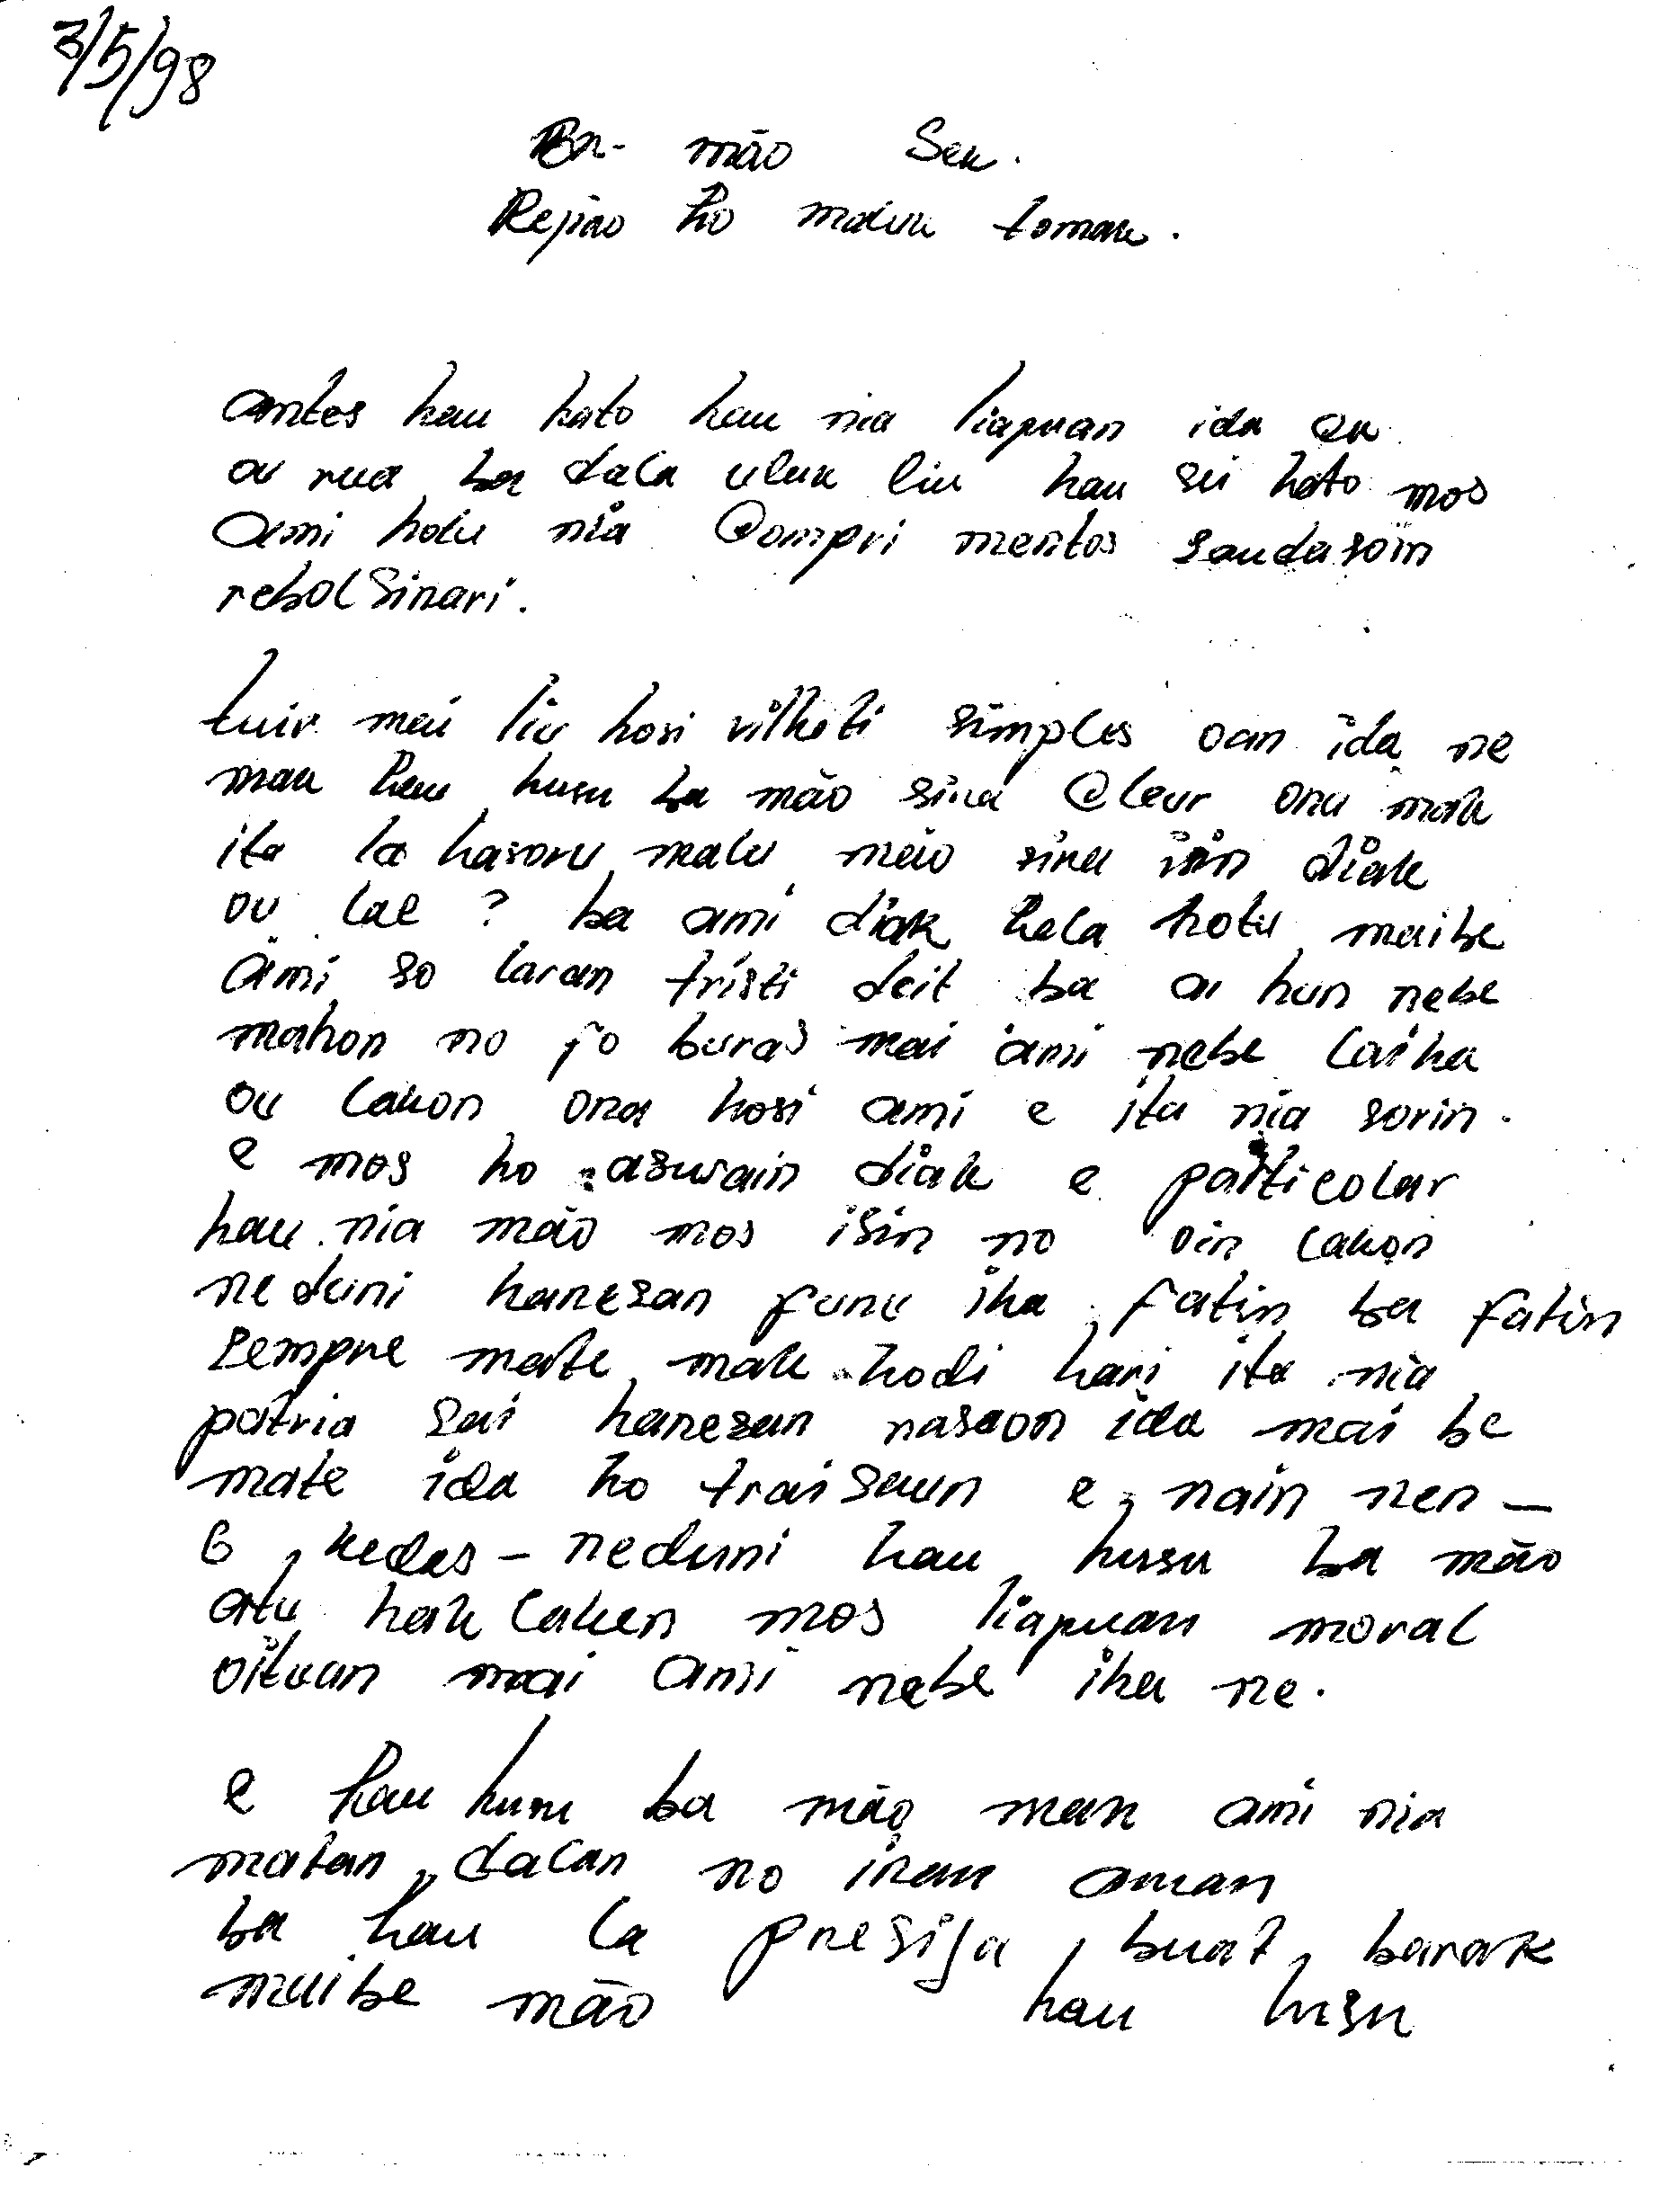 3/5/98
Ba- mão Sek.
Rejiao ho maluk tomak.
antes hau hato hau nia liapuan ida
ou rua ba dala uluk liu hau sei hato mos
ami hotu nia Compri mentos saudasoin
rebolsinari.
tuir mai liu hosi vilheti simples oan ida ne
mak hau husu ba mão sira Cleur ona mak
ita la hasoru malu mão sira isin diak
ou lae ? ba ami diak hela hotu maibe
ami so laran tristi deit ba ai hun nebe
mahon no fo buras mai ami nebe laiha
ou lakon ona hosi ami e ita nia sorin.
e mos ho asuwain diak e particolar
hau nia mão mos isin no oin lakon
neduni hanesan funu iha fatin ba fatin
sempre mate mak hodi hari ita nia
patria sai hanesan nasaon ida mai be
mate ida ho traisaun e nain nen -
6 kedas - neduni hau husu ba mão
atu hak laken mos liapuan moral
oituan mai ami nebe iha ne.
e hau husu ba mão mak ami nia
matan dalan no inan aman
ba hau la presija buat barak
maibe mão hau husu